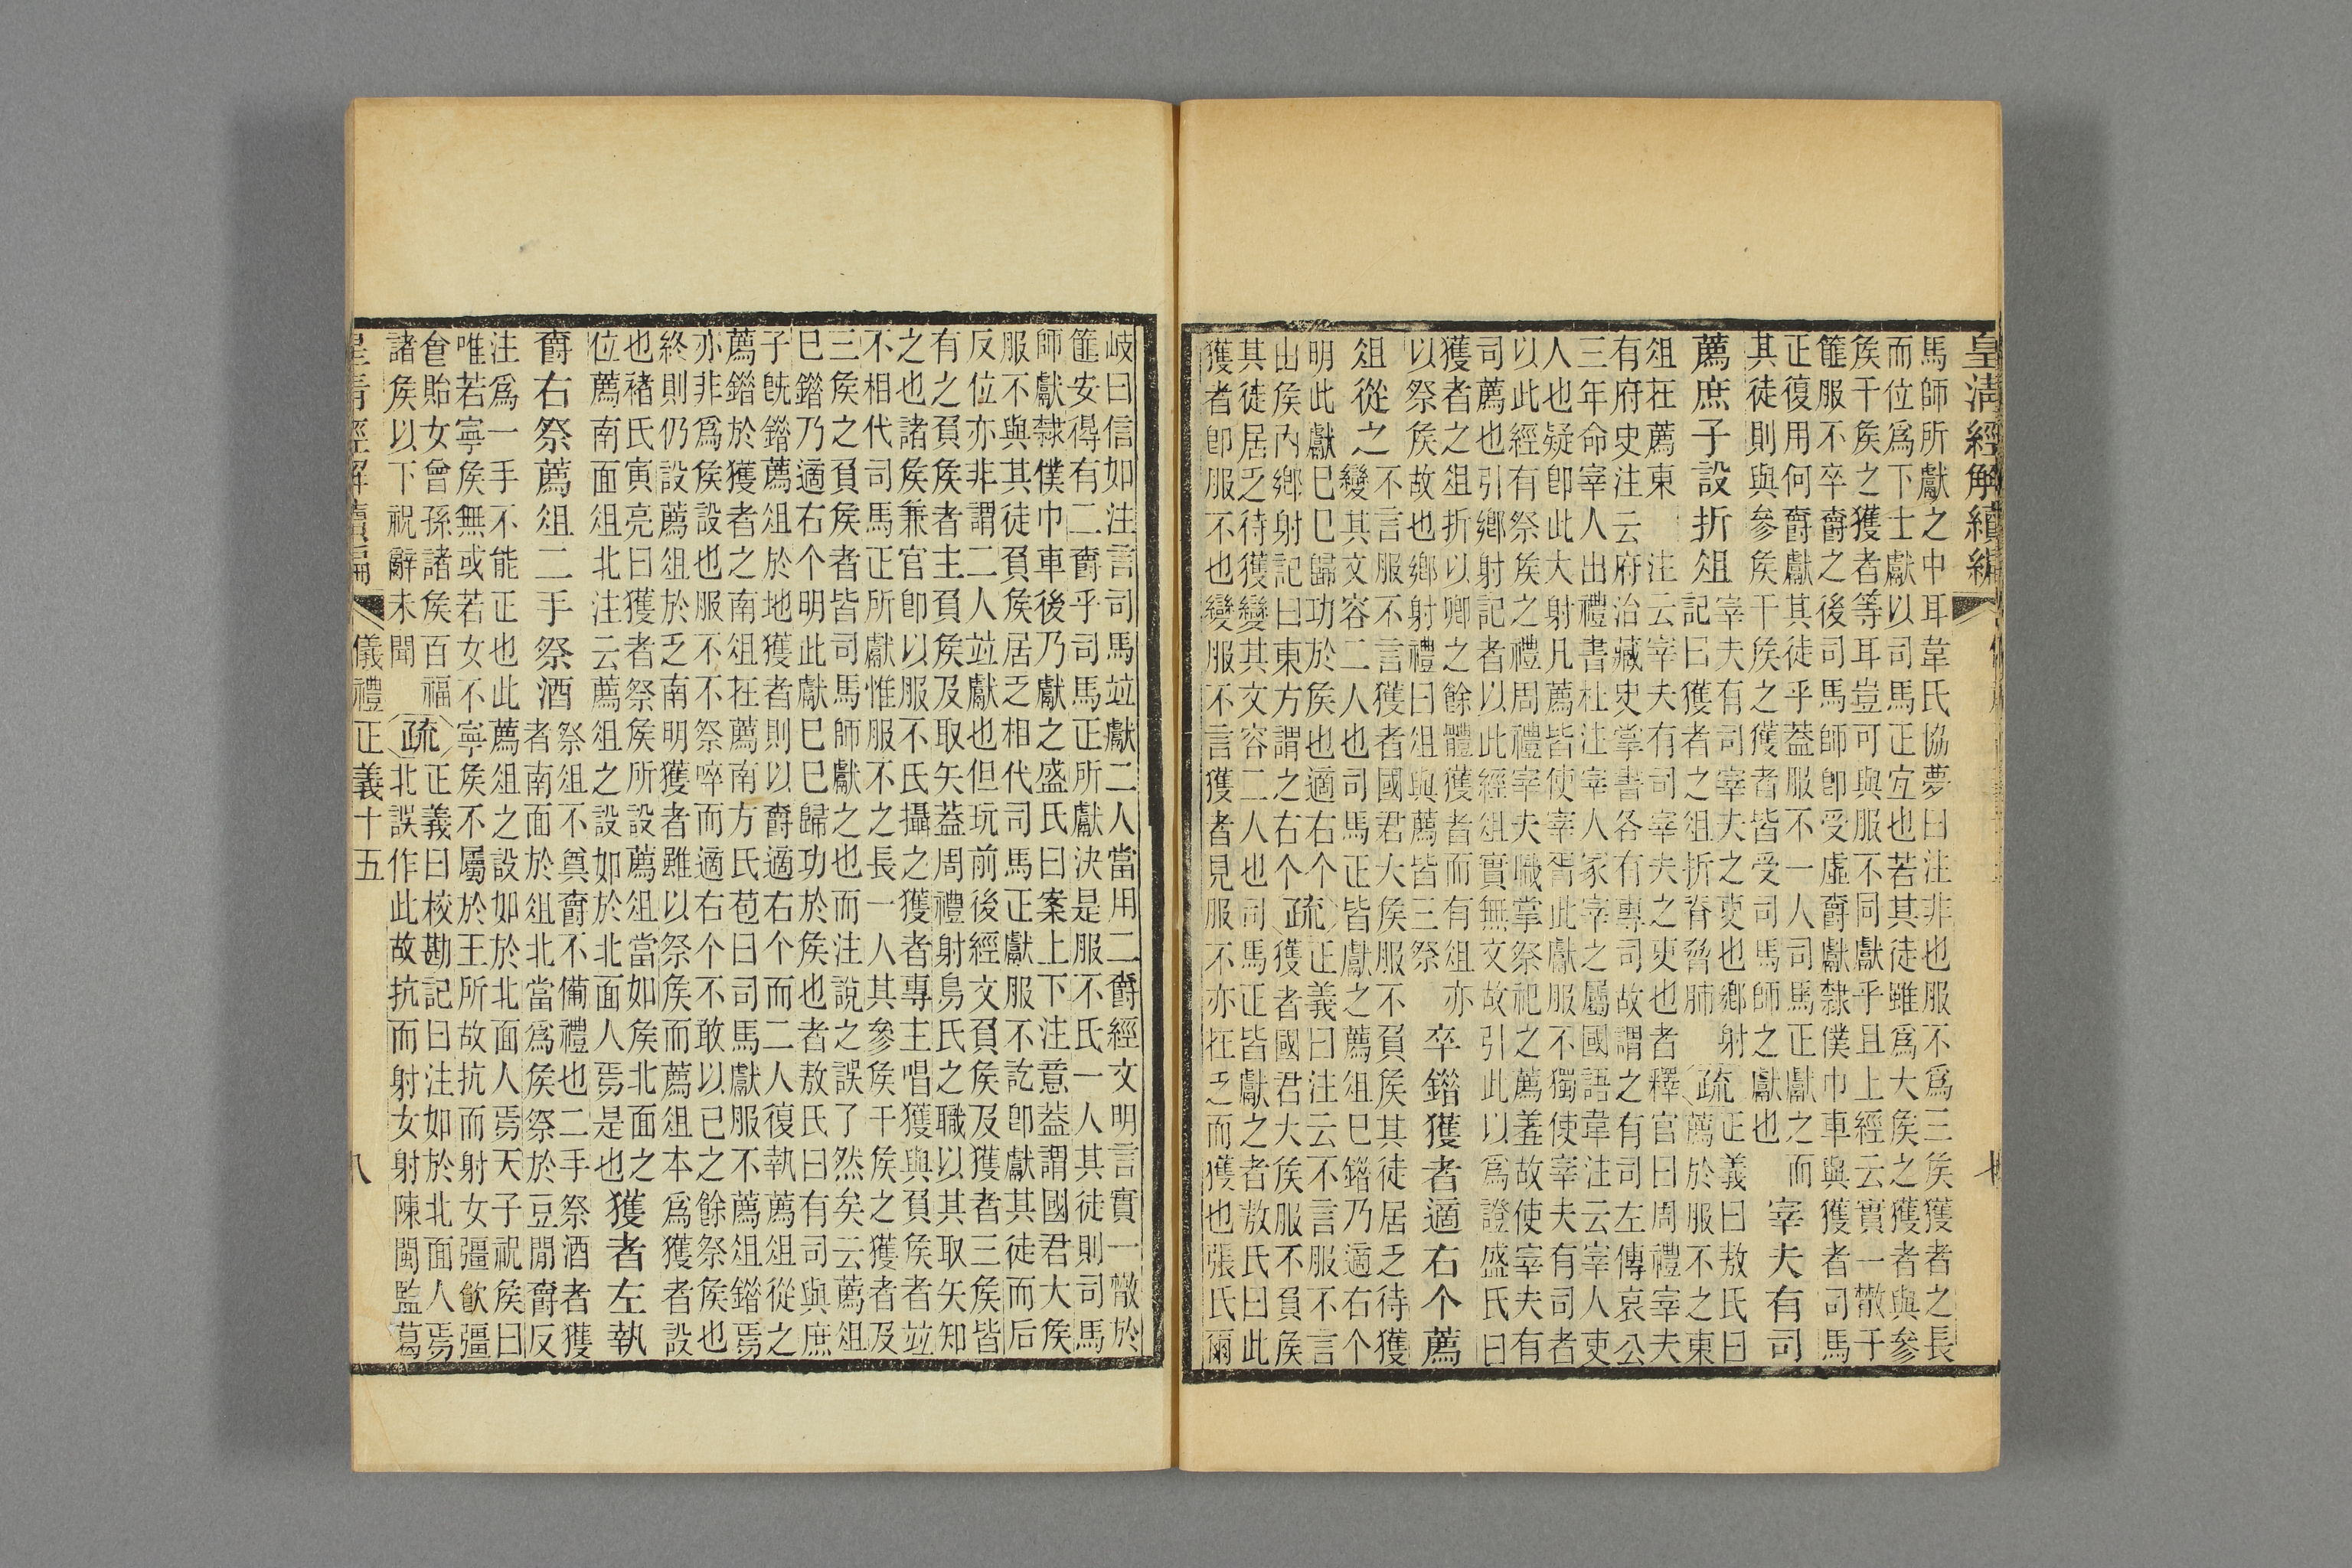 皇清經解續編
馬師所獻之中耳韋氏協夢曰注非也服不為三矦獲者之長
而位為下士獻以司馬正宜也若其徒雖為大矦之獲者與參
矦干矦之獲者等耳豈可與服不同獻乎且上經云實一散于
篚服不卒爵之後司馬師卽受虛爵獻隸僕巾車與獲者司馬
正復用何爵獻其徒乎葢服不一人司馬正獻之而
其徒則與參矦干矦之獲者皆受司馬師之獻也
宰夫有司
薦庶子設折俎
宰夫有司宰夫之吏也鄉射
記曰獲者之俎折脊脅肺
疏
正義曰敖氏曰
薦於服不之東
俎在薦東
注云宰夫有司宰夫之吏也者釋官曰周禮宰夫
有府史注云府治藏史掌書各有專司故謂之有司左傳哀公
三年命宰人出禮書杜注宰人冢宰之屬國語韋注云宰人吏
人也疑卽此大射凡薦皆使宰胥此獻服不獨使宰夫有司者
以此經有祭矦之禮周禮宰夫職掌祭祀之薦羞故使宰夫有
司薦也引鄉射記者以此經俎實無文故引此以為證盛氏曰
獲者之俎折以卿之餘體獲者而有俎亦
以祭矦故也鄉射禮曰俎與薦皆三祭
卒錯獲者適右个薦
俎從之
不言服不言獲者國君大矦服不負矦其徒居乏待獲
變其文容二人也司馬正皆獻之薦俎已錯乃適右个
明此獻已已歸功於矦也適右个
出矦內鄉射記曰東方謂之右个
疏
正義曰注云不言服不言
獲者國君大矦服不負矦
其徒居乏待獲變其文容二人也司馬正皆獻之者敖氏曰此
獲者卽服不也變服不言獲者見服不亦在乏而獲也張氏爾
岐曰信如注言司馬竝獻二人當用二爵經文明言實一散於
篚安得有二爵乎司馬正所獻決是服不氏一人其徒則司馬
師獻隸僕巾車後乃獻之盛氏曰案上下注意葢謂國君大矦
服不與其徒負矦居乏相代司馬正獻服不訖卽獻其徒而后
反位亦非謂二人竝獻也但玩前後經文負矦及獲者三矦皆
有之負矦者主負矦及取矢葢周禮射鳥氏之職以其取矢知
之也諸矦兼官卽以服不氏攝之獲者專主唱獲與負矦者竝
不相代司馬正所獻惟服不之長一人其參矦干矦之獲者及
三矦之負矦者皆司馬師獻之也而注說之誤了然矣云薦俎
已錯乃適右个明此獻已已歸功於矦也者敖氏曰有司與庶
子旣錯薦俎於地獲者則以爵適右个而二人復執薦俎從之
薦錯於獲者之南俎在薦南方氏苞曰司馬獻服不薦俎錯焉
亦非為矦設也服不不祭啐而適右个不敢以已之餘祭矦也
終則仍設薦俎於乏南明獲者雖以祭矦而薦俎本為獲者設
也褚氏寅亮曰獲者祭矦所設薦俎當如矦北面之
位薦南面俎北注云薦俎之設如於北面人焉是也
獲者左執
爵右祭薦俎二手祭酒
祭俎不奠爵不備禮也二手祭酒者獲
者南面於俎北當為矦祭於豆閒爵反
注為一手不能正也此薦俎之設如於北面人焉天子祝矦曰
唯若寧矦無或若女不寧矦不屬於王所故抗而射女彊飮彊
食貽女曾孫諸矦百福
諸矦以下祝辭未聞
疏
正義曰校勘記曰注如於北面人焉
北誤作此故抗而射女射陳閩監葛
皇清經解續編
儀禮正義十五
八